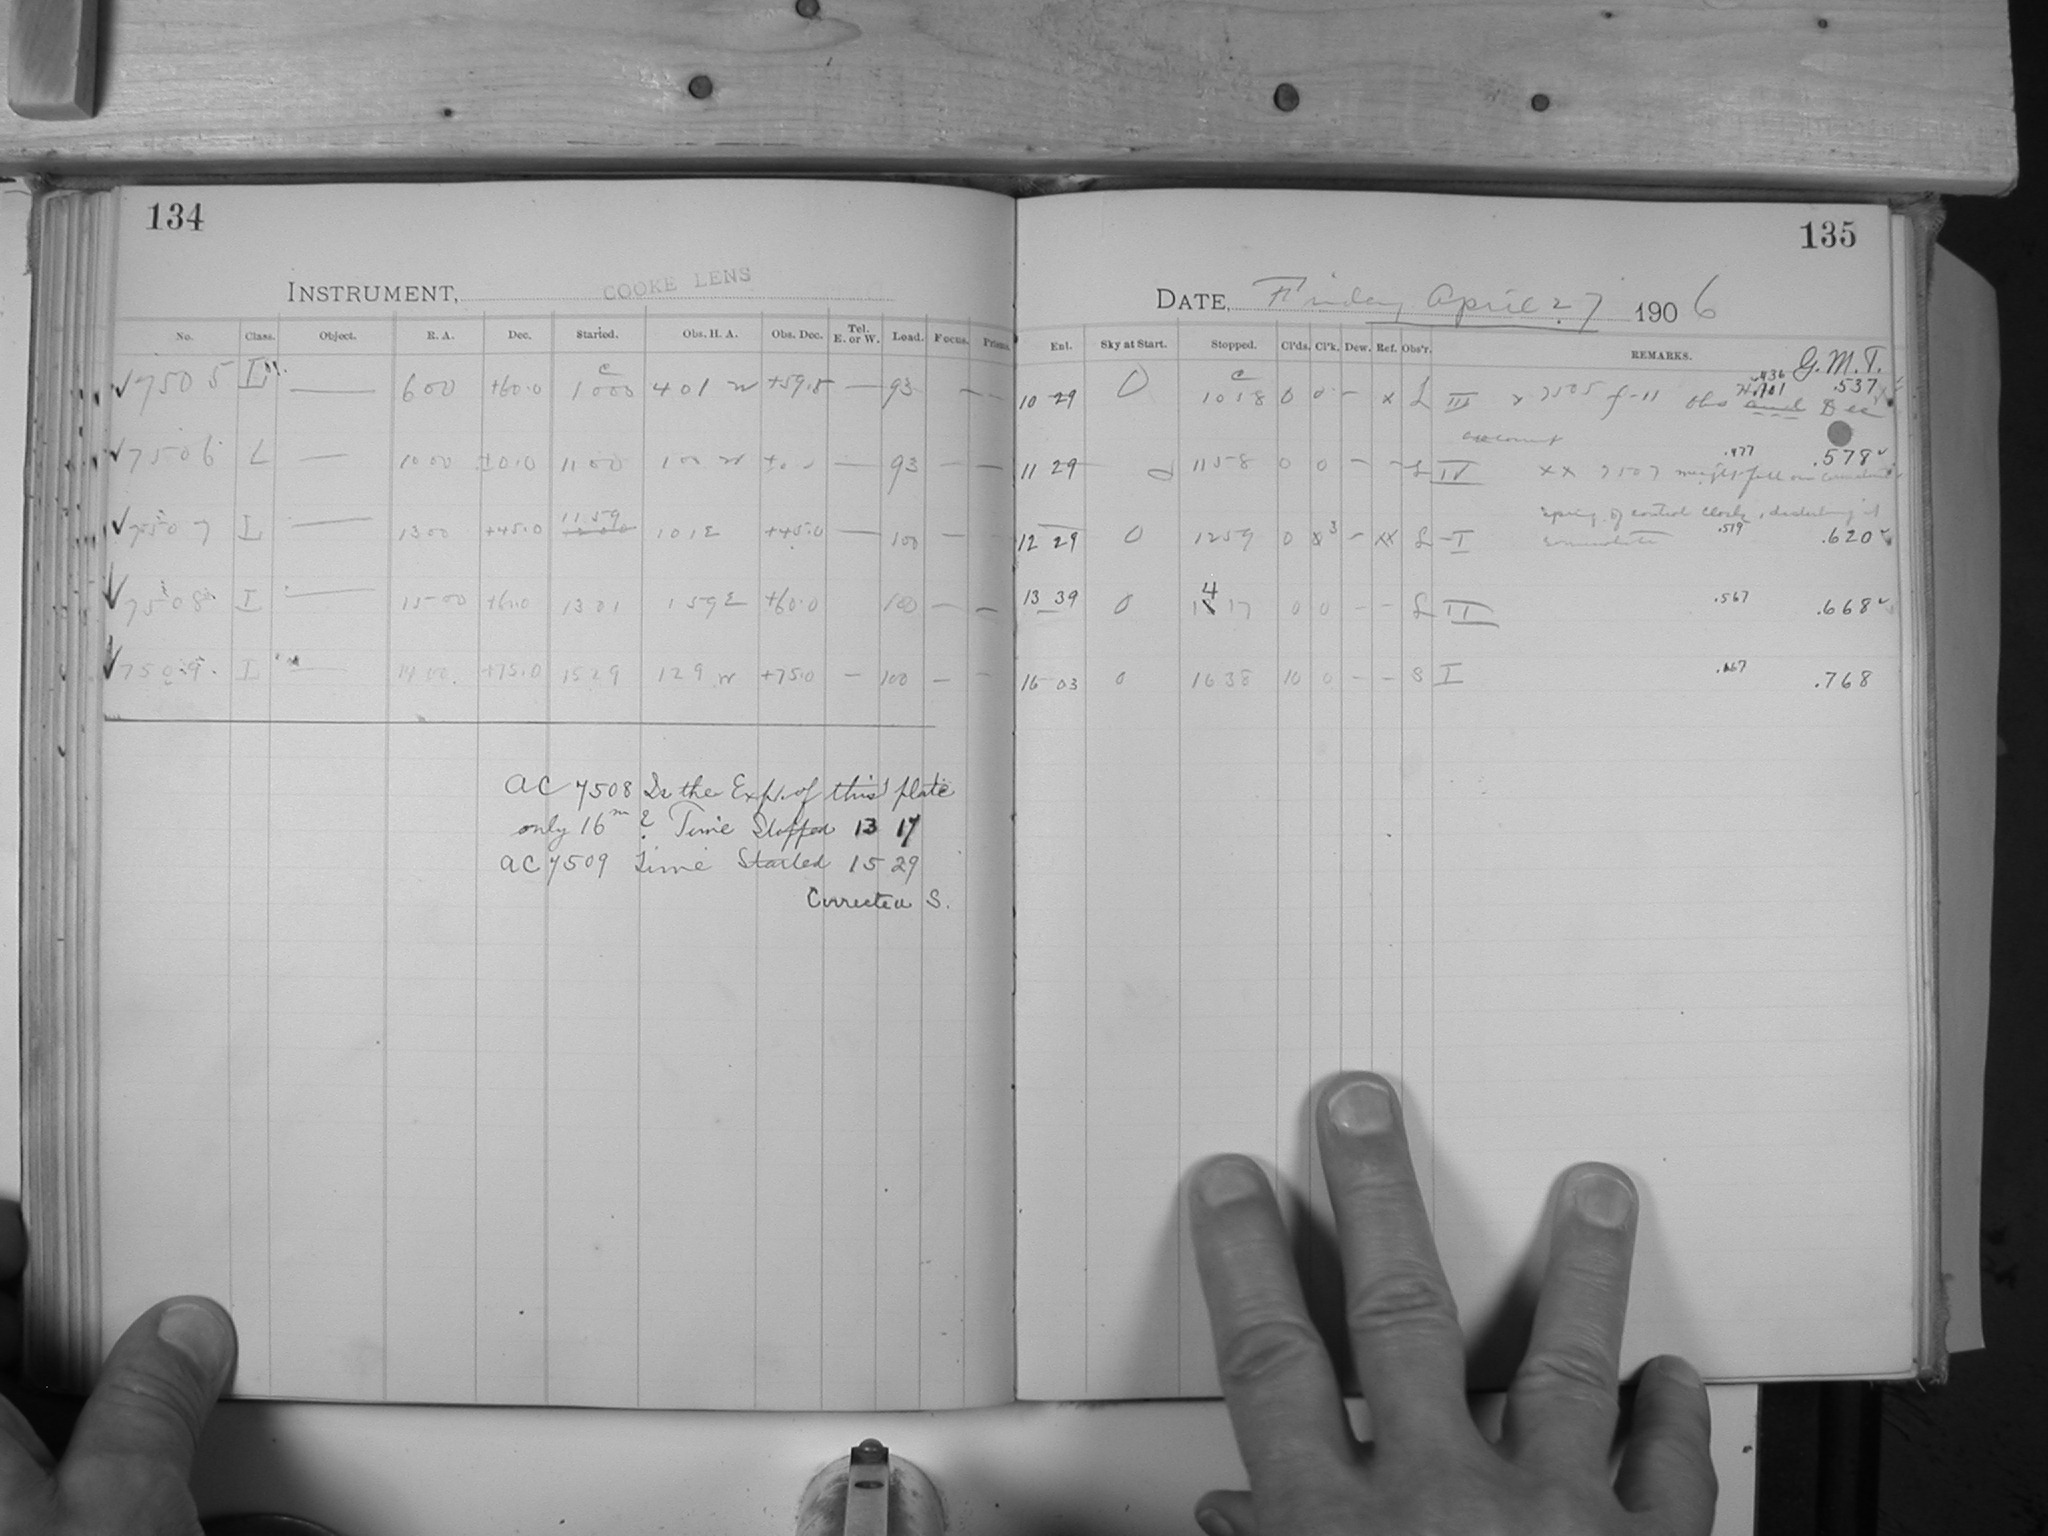 134
INSTRUMENT, COOKE LENS
No. Class. Object. R. A. Dec. Started. Obs. H. A. Obs. Dec. Tel. E. or W. Load. Focus. Prisms.
c
7505 L — 6 00 +60.0 10 00 4 01 W +59.8 — 93 — —
7506 L — 10 00 ±0.0 11 00 1 00 W — 93 — —
11 59
7507 L — 13 00 +45.0 12 00 1 01 E +45.0 — 100 — —
7508 L — 15 00 13 01 1 59 E +60.0 100 — —
7509 L — 14 00 +75.0 15 29 1 29 W +75.0 — 100 — —
AC 7508 Is the Exp. of this plate
only 16m ? Time Stopped 13 17
AC 7509 Time Started 15 29
Corrected S.
135
DATE, Friday April 27 1906
Ent. Sky at Start. Stopped. Cl'ds. Cl'k. Dew. Ref. Obs'r. REMARKS. G.M.T.
c .436 .537
10 29 0 10 58 0 0 — x L III x 7505 f-11 Obs and Dec
.477 .578
11 29 0 11 58 0 0 — — L IV xx 7507 might fall on
spring of control clock, disturbing it
12 29 0 12 59 0 x3 — xx L — I .519 .620
4
13 39 0 1 17 0 0 — — L II .567 .668
16 03 0 16 38 10 0 — — S I .667 .768